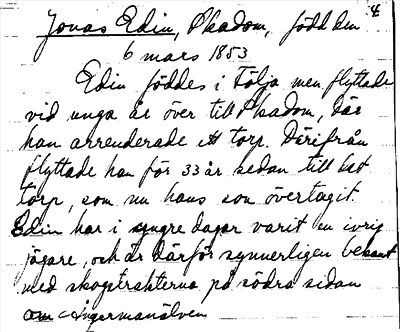 4
Jonas Edin, Skadom, född den
6 mars 1853
Edin föddes i Tölja men flyttade
vid unga år över till Skadom, där
han arrenderade ett torp. Därifrån
flyttade han för 33 år sedan till det
torp, som nu hans son övertagit.
Edin har i yngre dagar varit en ivrig
jägare, och är därför synnerligen bekant
med skogstrakterna på södra sidan
om Ångermanälven